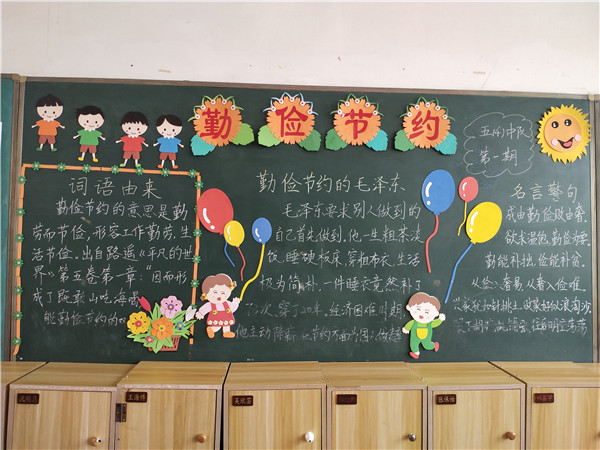 勤俭节约
五(4)中队
第一期
词语由来
勤俭节约的意思是勤
劳而节俭,形容工作勤劳,生
活节俭。出自路遥《平凡的世
界》第五卷第一章:"因而形
成了
能勤俭节约的
勤俭节约的毛泽东
毛泽东要求别人做到的
自己首先做到。他一生粗茶淡
饭,睡硬板床,穿粗布衣,生活
极为简朴。一件睡衣竟然补了
次,穿了20年。经济困难时期,
他主动降薪
名言警句
成由勤俭败由奢。
欲求温饱,勤俭为要。
勤能补拙,俭能补贫。
从俭入奢易,从奢入俭难。
兴家犹如针挑土,败家好似浪淘沙。